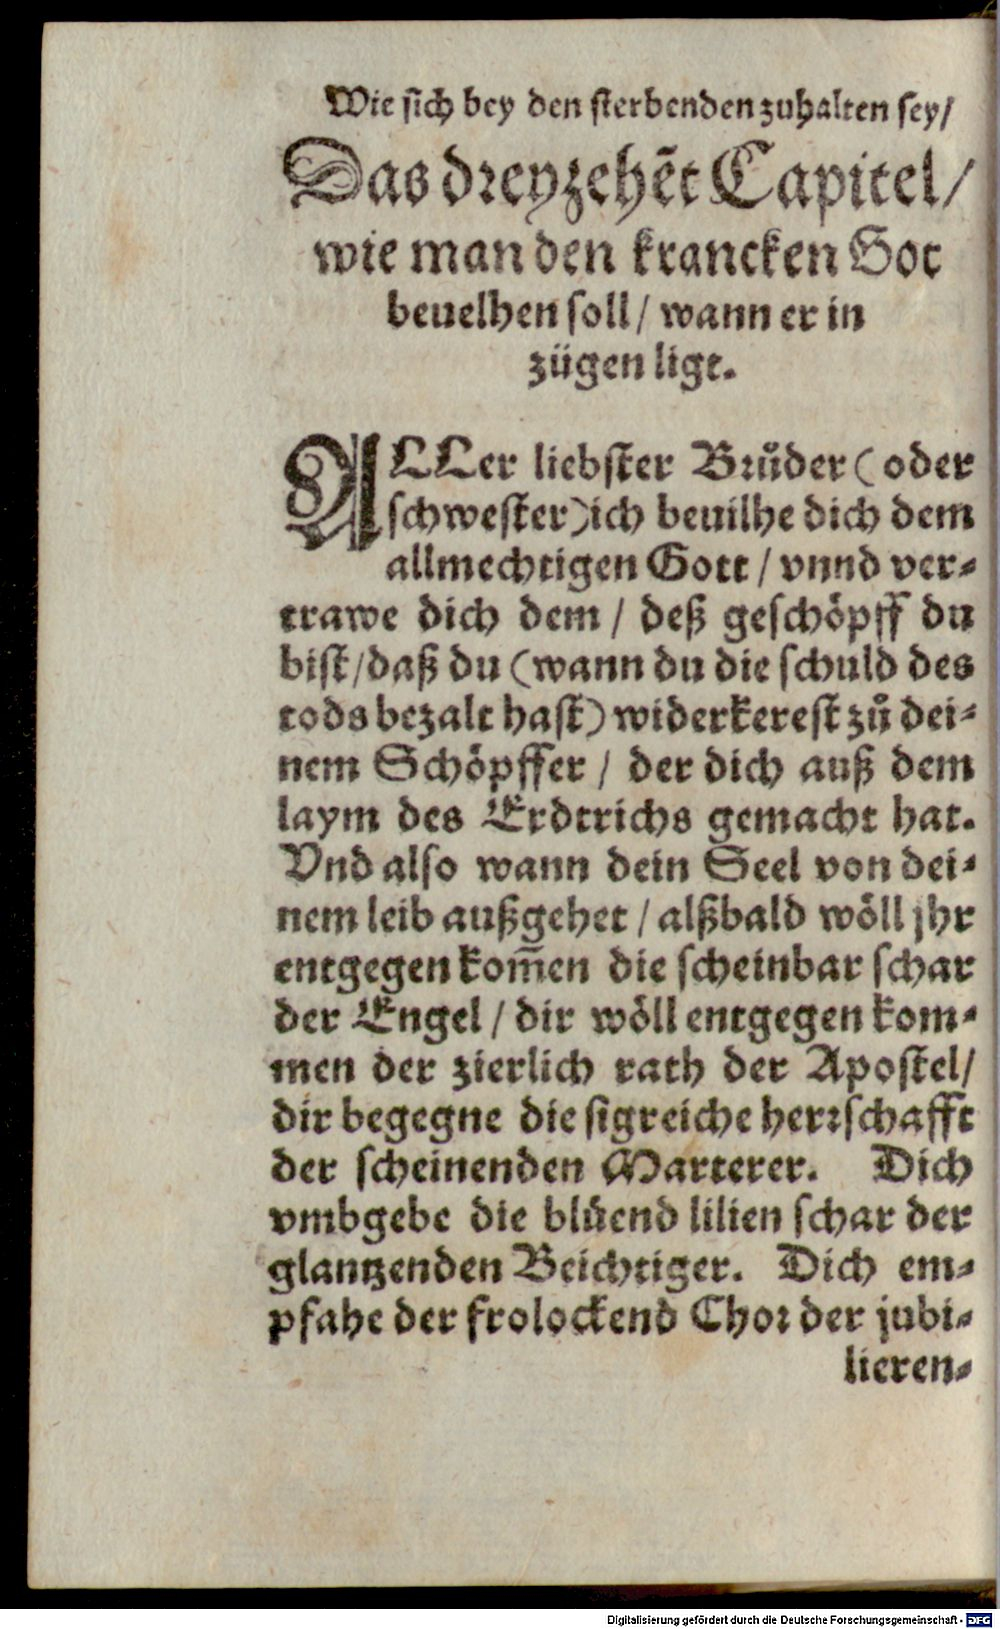 Wie sich bey den sterbenden zuhalten sey/
Das dreyzehẽt Capitel/
wie man den krancken Got
beuelhen soll/ wann er in
zügen ligt.
ALLer liebster Brůder (oder
schwester) ich beuilhe dich dem
allmechtigen Gott / vnnd ver-
trawe dich dem / deß geschöpff du
bist/ daß du (wann du die schuld des
tods bezalt hast) widerkerest zů dei-
nem Schöpffer / der dich auß dem
laym des Erdtrichs gemacht hat.
Vnd also wann dein Seel von dei-
nem leib außgehet / alßbald wöll jhr
entgegen kom̃en die scheinbar schar
der Engel / dir wöll entgegen kom-
men der zierlich rath der Apostel/
dir begegne die sigreiche herrschafft
der scheinenden Marterer. Dich
vmbgebe die blüend lilien schar der
glantzenden Beichtiger. Dich em-
pfahe der frolockend Chor der jubi-
lieren-
Digitalisierung gefördert durch die Deutsche Forschungsgemeinschaft - DFG